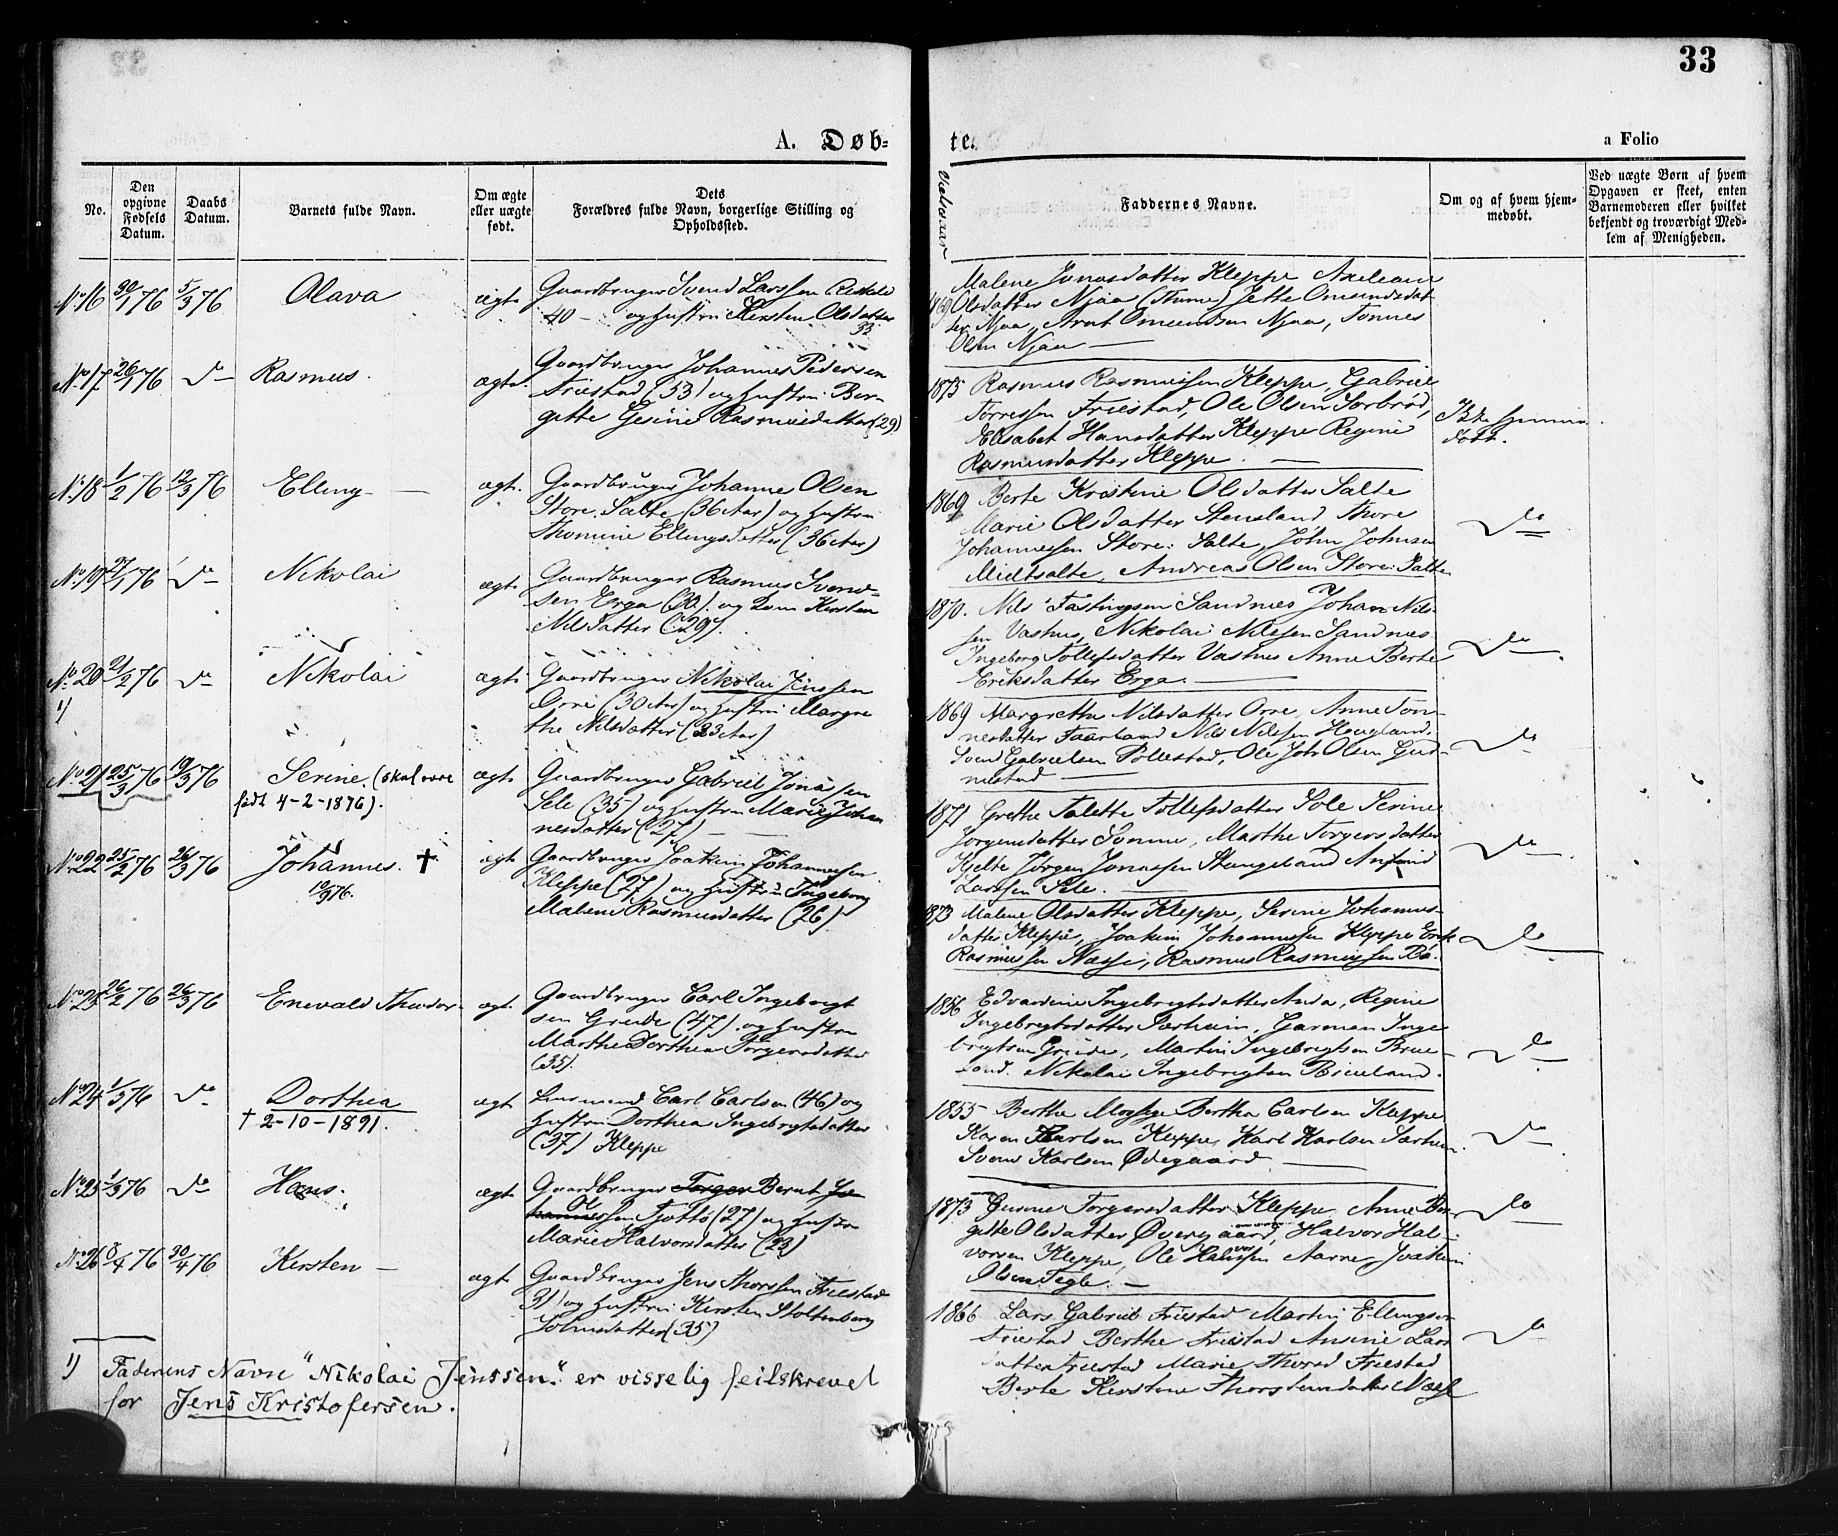 33
A. Døb-
te.
a Folio
No.
Den opgivne Fødsels Datum.
Daabs Datum.
Barnets fulde Navn.
Om ægte eller uægte født.
Dets
Forældres fulde Navn, borgerlige Stilling og
Opholdssted.
Faddernes Navne.
Om og af hvem hjem-
medøbt.
Ved uægte Børn af hvem
Opgaven er skeet, enten
Barnemoderen eller hvilket
bekjendt og troværdigt Med-
lem af Menigheden.
No 16 30/1 76 5/3 76 Olava ægt.
Gaardbruger Svend Larssen
40 – og Hustru Kirsten Olsdatter
33
Malene Jonasdatter Kleppe
1869 Olsdatter Njaa (Thime) Jette Omundsdat-
ter Njaa, Arnt Omundsen Njaa, Tønnes
Olsen Njaa —
No 17 26/1 76 Do Rasmus. ægte.
Gaardbruger Johannes Pedersen
Friestad (53) og Hustru Ber-
gitte Gesine Rasmusdatter (29)
1875 Rasmus Rasmussen Kleppe, Gabriel
Torressen Friestad, Ole Olsen Sørbrød,
Elisabet Hansdatter Kleppe Regine
Rasmusdatter Kleppe. —
Ikke hjemme
døbt.
No 18 1/2 76 12/3 76 Elling – ægt.
Gaardbruger Johanne Olsen
Store Salte (36 Aar) og Hustru
Thomine Ellingsdatter (36 Aar)
1869 Berte Kristine Olsdatter Salte
Marie Olsdatter Stensland Thore
Johannessen Store: Salte, John Johnsen
Midtsalte, Andreas Olsen Store: Salte
Do
No 19 27/1 76 Do Nikolai ægt.
Gaardbruger Rasmus Svend-
sen Erga (30). og Kirsten
Nilsdatter (29).
1870. Nils Fastingsen Sandnes Johan Nils-
sen Vashus, Nikolai Nilssen Sandnes
Ingeborg Tollefsdatter Vashus Anne Berte
Eriksdatter Erga. —
Do
No 20 21/2 76 Do Nikolai ægt.
1)
Gaardbruger Nikolai Jenssen
Orre (30 Aar) og Hustru Margre
the Nilsdatter (33 Aar)
1869 Margrethe Nilsdatter Orre, Anne Tøn-
nesdatter Faarland Nils Nilssen Haugland,
Svend Gabrielsen Pollestad, Ole Joh: Olsen Gud-
mestad —
Do
No 21 25/3 76 19/3 76 Serine. (skal være ægt.
født 4-2-1876).
Gaardbruger Gabriel Jonassen
Sele (35) og Hustru Marie Johan
nesdatter (27) —
1871 Grethe Talette Tollefsdatter Sole Serine
Jørgensdatter Somme, Marthe Torgersdatter
Kjelte Jørgen Jonassen Stangeland
Larssen Sele. —
Do
No 22 25/2 76 26/3 76 Johannes. † ægt
10/9 76.
Gaardbruger Joakim Johannessen
Kleppe (27) og Hustru Ingeborg
Malene Rasmusdatter (26)
1873 Malene Olsdatter Kleppe, Serine Johannes-
datter Kleppe, Joakim Johannessen Kleppe Erik
Rasmussen Næsse, Rasmus Rasmussen Bø.
Do
No 23 26/2 76 26/3 76 Enevald Theodor- ægt.
Gaardbruger Carl Ingebregt
sen Grude (47) og Hustru
Marthe Dorthea Torgersdatter
(35).
1856 Edvardine Ingebregtsdatter Anda, Regine
Ingebregtsdatter Særheim, Garman Inge
bregtsen Grude, Martin Ingebregtsen Brue-
land. Nikolai Ingebregtsen Brueland.
Do
No 24 1/3 76 Do Dorthea ægt
† 2-10-1891.
Lensmand Carl Carlsen (46) og
Hustru Dorthea Ingebregtsdatter
(37) Kleppe
1855 Berthe Mossige Bertha Carlsen Kleppe
Karen Karlsen Kleppe, Karl Karlsen Særheim
Svend Karlsen Ødegaard —
Do
No 25 1/3 76 Do Hans. ægt
Gaardbruger Torger Bernt Jo-
hannessen Tjøtta (27) og Hustru
Marie Halvorsdatter (23)
1873 Gunne Torgersdatter Kleppe, Anne Ber-
gitte Olsdatter Øvergaard, Halvor Hal-
vorsen Kleppe, Ole Halvorsen Aarre, Joakim
Olsen Tegle. —
Do
No 26 8/4 76 30/4 76 Kirsten – ægt
Gaardbruger Jens Thorssen Friestad
31) og Hustru Kirsten Stoltenberg
Johnsdatter (35)
1866 Lars Gabriel Friestad Martin Ellingsen
Friestad Berthe Friestad Ansine Lars
datter Friestad Marie Thorød Friestad
Berte Kirstine Thorsteinsdatter Næse
Do
1) Faderens Navne "Nikolai Jenssen" er visselig feilskrevet
for Jens Kristofersen.